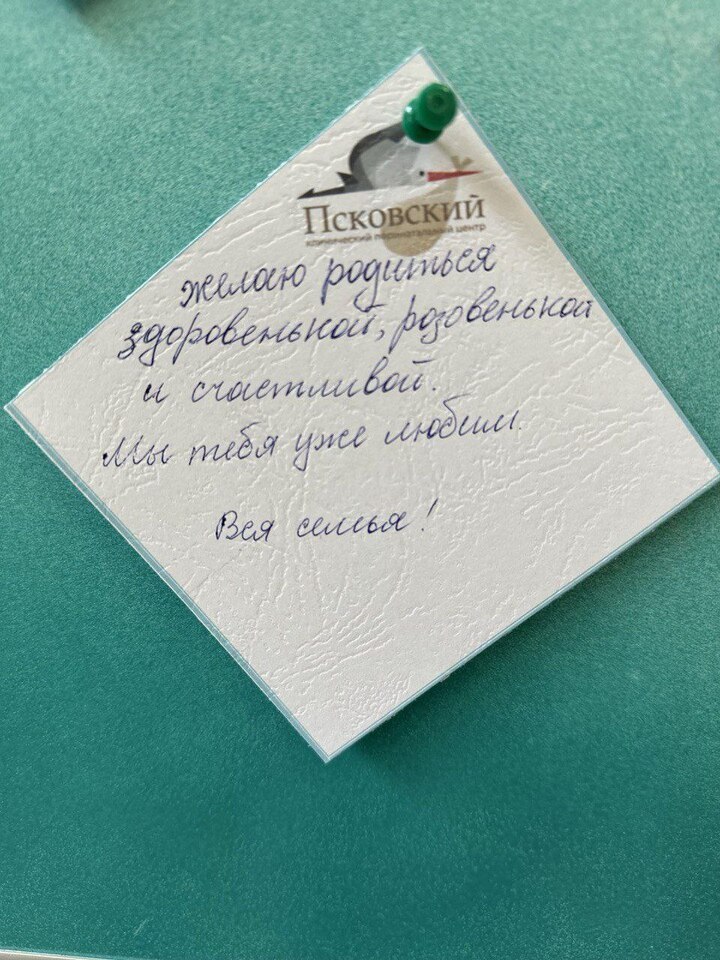 Псковский
клинический перинатальный центр
желаю родиться
здоровенькой, розовенькой
и счастливой.
Мы тебя уже любим.
Вся семья!